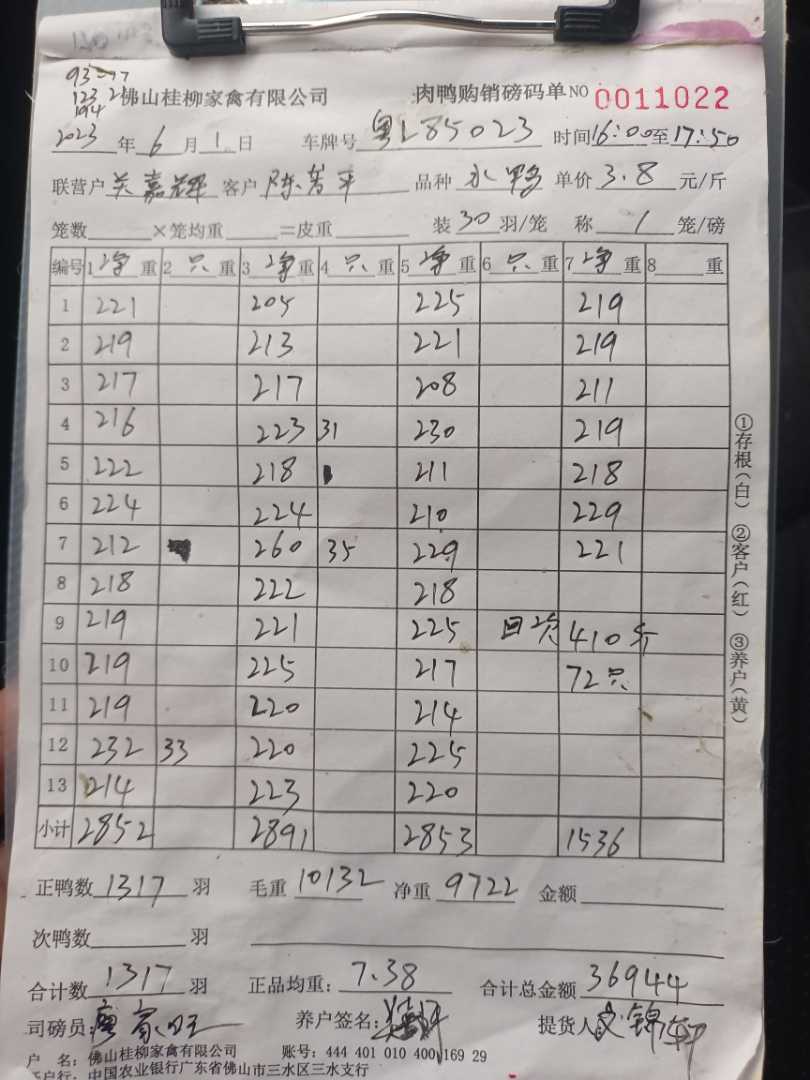 93 77
123 2
194
佛山桂柳家禽有限公司 肉鸭购销磅码单 NO 0011022
2023 年 6 月 1 日 车牌号 粤L85023 时间 16:00 至 17:50
联营户 关嘉辉 客户 陈 平 品种 水鸭 单价 3.8 元/斤
笼数 ×笼均重 =皮重 装 30 羽/笼 称 1 笼/磅
编号 1 净 重 2 只 重 3 净 重 4 只 重 5 净 重 6 只 重 7 净 重 8 重
1 221 205 225 219
2 219 213 221 219
3 217 217 208 211
4 216 223 31 230 219
5 222 218 211 218
6 224 224 210 229
7 212 260 35 229 221
8 218 222 218
9 219 221 225 回 410斤
10 219 225 217 72只
11 219 220 214
12 232 33 220 225
13 214 223 220
小计 2852 2891 2853 1536
①存根(白) ②客户(红) ③养户(黄)
正鸭数 1317 羽 毛重 10132 净重 9722 金额
次鸭数 羽
合计数 1317 羽 正品均重: 7.38 合计总金额 36944
司磅员: 家旺 养户签名: 提货人 锦
户 名: 佛山桂柳家禽有限公司 账号: 444 401 010 400 169 29
开户行: 中国农业银行广东省佛山市三水区三水支行